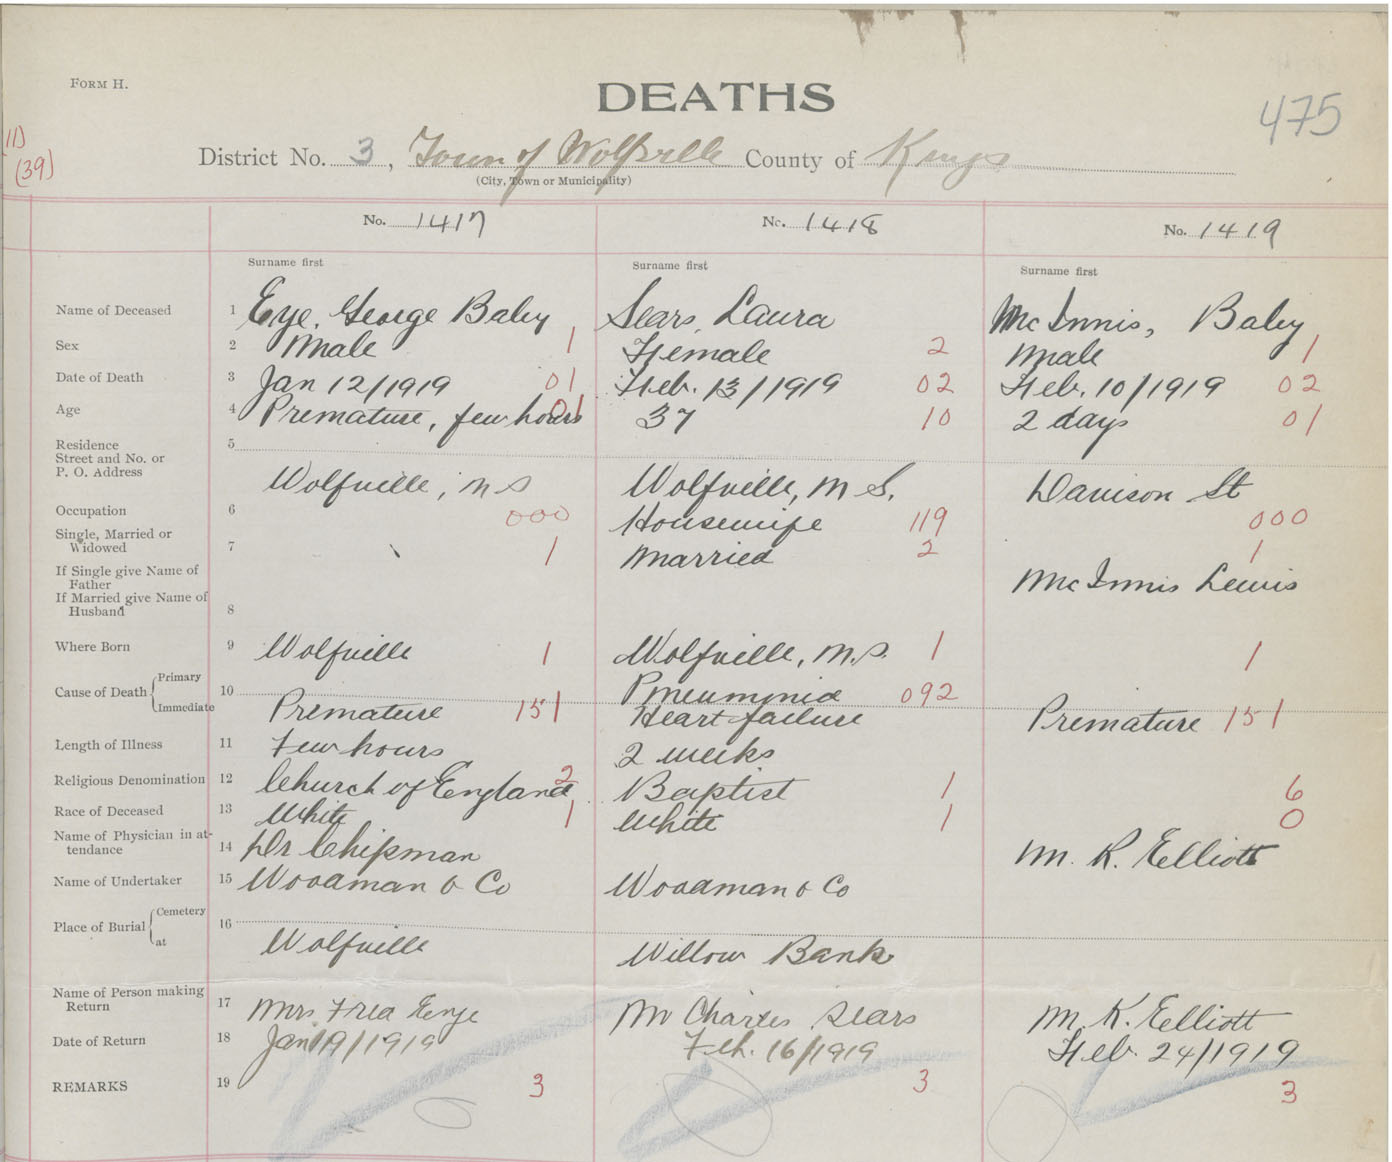 FORM H.
DEATHS
475
11)
(39)
District No. 3, Town of Wolfville County of Kings
(City, Town or Municipality)
No. 1417 No. 1418 No. 1419
Surname first Surname first Surname first
Name of Deceased 1 Eye, George Baby Sears, Laura McInnis, Baby
Sex 2 Male 1 Female 2 Male 1
Date of Death 3 Jan 12/1919 01 Feb. 13/1919 02 Feb. 10/1919 02
Age 4 Premature, few hours 01 37 10 2 days 01
Residence 5
Street and No. or
P. O. Address Wolfville, N S Wolfville, N S. Davison St
Occupation 6 000 Housewife 119 000
Single, Married or
Widowed 7 1 Married 2 1
If Single give Name of
Father McInnis Lewis
If Married give Name of
Husband 8
Where Born 9 Wolfville 1 Wolfville, N.S. 1 1
Cause of Death Primary 10 Pneumonia 092
Immediate Premature 151 Heart failure Premature 151
Length of Illness 11 Few hours 2 weeks
Religious Denomination 12 Church of England 2 Baptist 1 6
Race of Deceased 13 White 1 White 1 0
Name of Physician in at-
tendance 14 Dr Chipman M. R. Elliott
Name of Undertaker 15 Woodman & Co Woodman & Co
Place of Burial Cemetery 16
at Wolfville Willow Bank
Name of Person making
Return 17 Mrs Fred Eye Mr Charles Sears M. K. Elliott
Date of Return 18 Jan 19/1919 Feb. 16/1919 Feb. 24/1919
REMARKS 19 3 3 3